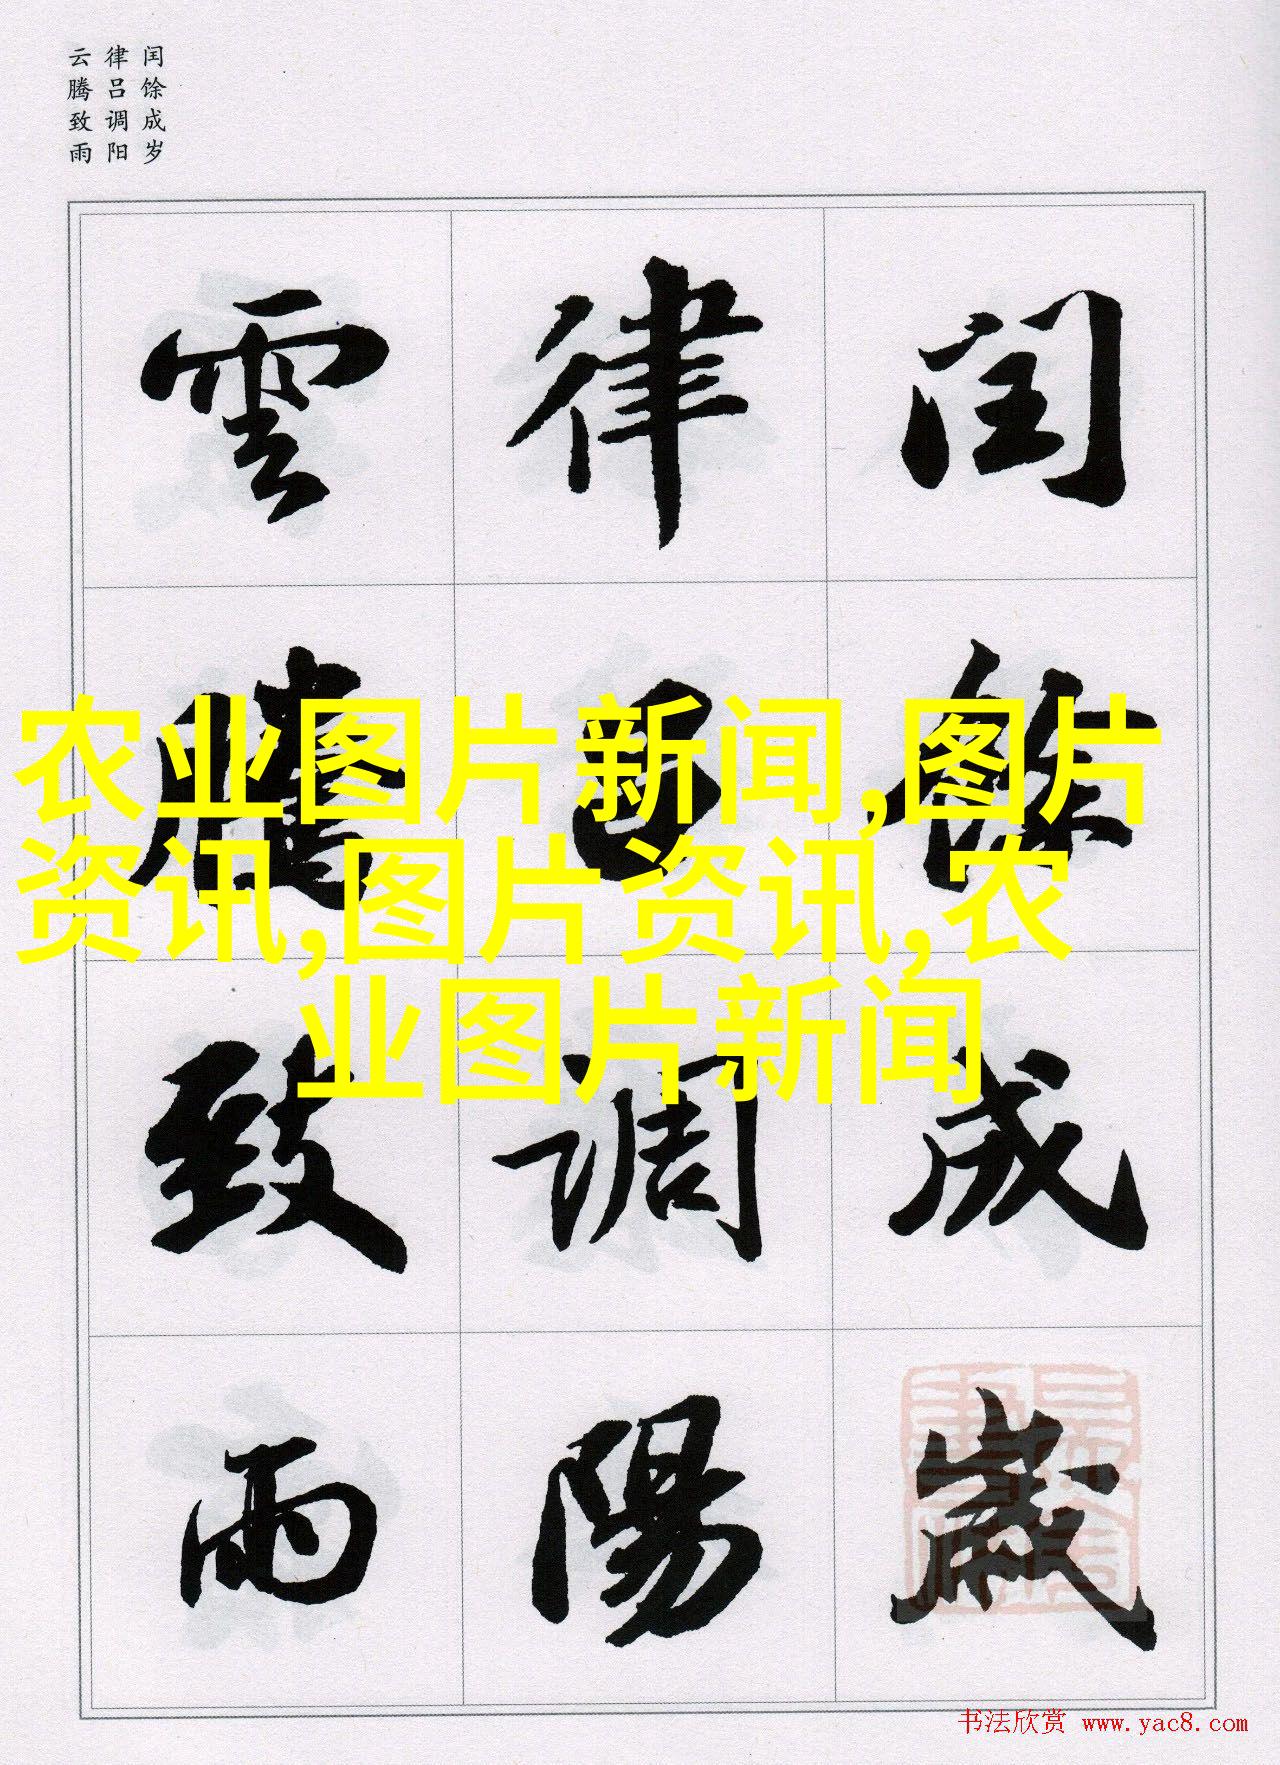 闰馀成岁
律吕调阳
云腾致雨
閏餘成歲
律吕調陽
雲騰致雨
农业图片新闻,图片
资讯,图片资讯,农
业图片新闻
书法欣赏 www.yac8.com